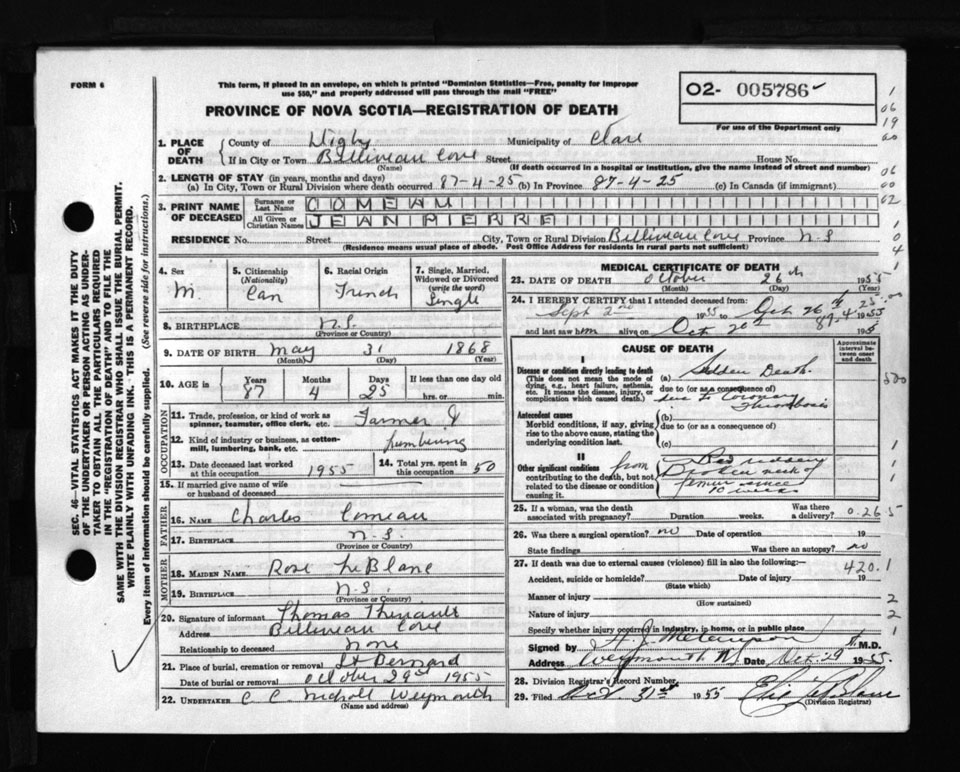 FORM 6
This form, if placed in an envelope, on which is printed "Dominion Statistics—Free, penalty for improper
use $50," and properly addressed will pass through the mail "FREE"
PROVINCE OF NOVA SCOTIA—REGISTRATION OF DEATH
02- 005786
For use of the Department only
1. PLACE OF DEATH
County of Digby Municipality of Clare
If in City or Town Belliveau Cove Street House No.
(Name) (If death occurred in a hospital or institution, give the name instead of street and number)
2. LENGTH OF STAY (in years, months and days)
(a) In City, Town or Rural Division where death occurred 87-4-25 (b) In Province 87-4-25 (c) In Canada (if immigrant)
3. PRINT NAME OF DECEASED
Surname or Last Name COMEAU
All Given or Christian Names JEAN PIERRE
RESIDENCE No. Street City, Town or Rural Division Belliveau Cove Province N.S
(Residence means usual place of abode. Post Office Address for residents in rural parts not sufficient)
4. Sex M.
5. Citizenship (Nationality) Can
6. Racial Origin French
7. Single, Married, Widowed or Divorced (write the word) Single
8. BIRTHPLACE N.S.
(Province or Country)
9. DATE OF BIRTH May 31 1868
(Month) (Day) (Year)
10. AGE IN Years 87 Months 4 Days 25 If less than one day old hrs. or min.
OCCUPATION
11. Trade, profession, or kind of work as spinner, teamster, office clerk, etc. Farmer &
12. Kind of industry or business, as cotton-mill, lumbering, bank, etc. lumbering
13. Date deceased last worked at this occupation 1955
14. Total yrs. spent in this occupation 50
15. If married give name of wife or husband of deceased
FATHER
16. NAME Charles Comeau
17. BIRTHPLACE N.S.
(Province or Country)
MOTHER
18. MAIDEN NAME Rose LeBlanc
19. BIRTHPLACE N.S
(Province or Country)
20. Signature of informant Thomas Theriault
Address Belliveau Cove
Relationship to deceased none
21. Place of burial, cremation or removal St Bernard
Date of burial or removal October 29 1955
22. UNDERTAKER C. C. Nicholl Weymouth
(Name and address)
MEDICAL CERTIFICATE OF DEATH
23. DATE OF DEATH October 26th 1955
(Month) (Day)
24. I HEREBY CERTIFY that I attended deceased from:
Sept 2nd 1955 to Oct 26 1955
and last saw him alive on Oct 20 1955
CAUSE OF DEATH
Approximate interval between onset and death
I
Disease or condition directly leading to death
(This does not mean the mode of dying, e.g., heart failure, asthenia, etc. It means the disease, injury, or complication which caused death.)
(a) Sudden Death
due to (or as a consequence of)
due to Coronary Thrombosis
Antecedent causes
Morbid conditions, if any, giving rise to the above cause, stating the underlying condition last.
(b)
due to (or as a consequence of)
(c)
II
Other significant conditions contributing to the death, but not related to the disease or condition causing it.
from Bed ridden
Broken neck of
femur since
10 weeks
25. If a woman, was the death associated with pregnancy? Duration weeks. Was there a delivery?
0.26.5
26. Was there a surgical operation? no Date of operation 19
State findings Was there an autopsy? no
27. If death was due to external causes (violence) fill in also the following:—
420.1
Accident, suicide or homicide? Date of injury 19
(State which)
Manner of injury
(How sustained)
Nature of injury
Specify whether injury occurred in industry, in home, or in public place
Signed by M.D.
Address Weymouth NS Date Oct. 29 1955.
28. Division Registrar's Record Number
29. Filed Oct. 31st 1955
(Division Registrar)
SEC. 46—VITAL STATISTICS ACT MAKES IT THE DUTY
OF THE UNDERTAKER OR PERSON ACTING AS UNDER-
TAKER TO OBTAIN ALL THE PARTICULARS REQUIRED
IN THE "REGISTRATION OF DEATH" AND TO FILE THE
SAME WITH THE DIVISION REGISTRAR WHO SHALL ISSUE THE BURIAL PERMIT.
WRITE PLAINLY WITH UNFADING INK. THIS IS A PERMANENT RECORD.
Every item of information should be carefully supplied. (See reverse side for instructions.)